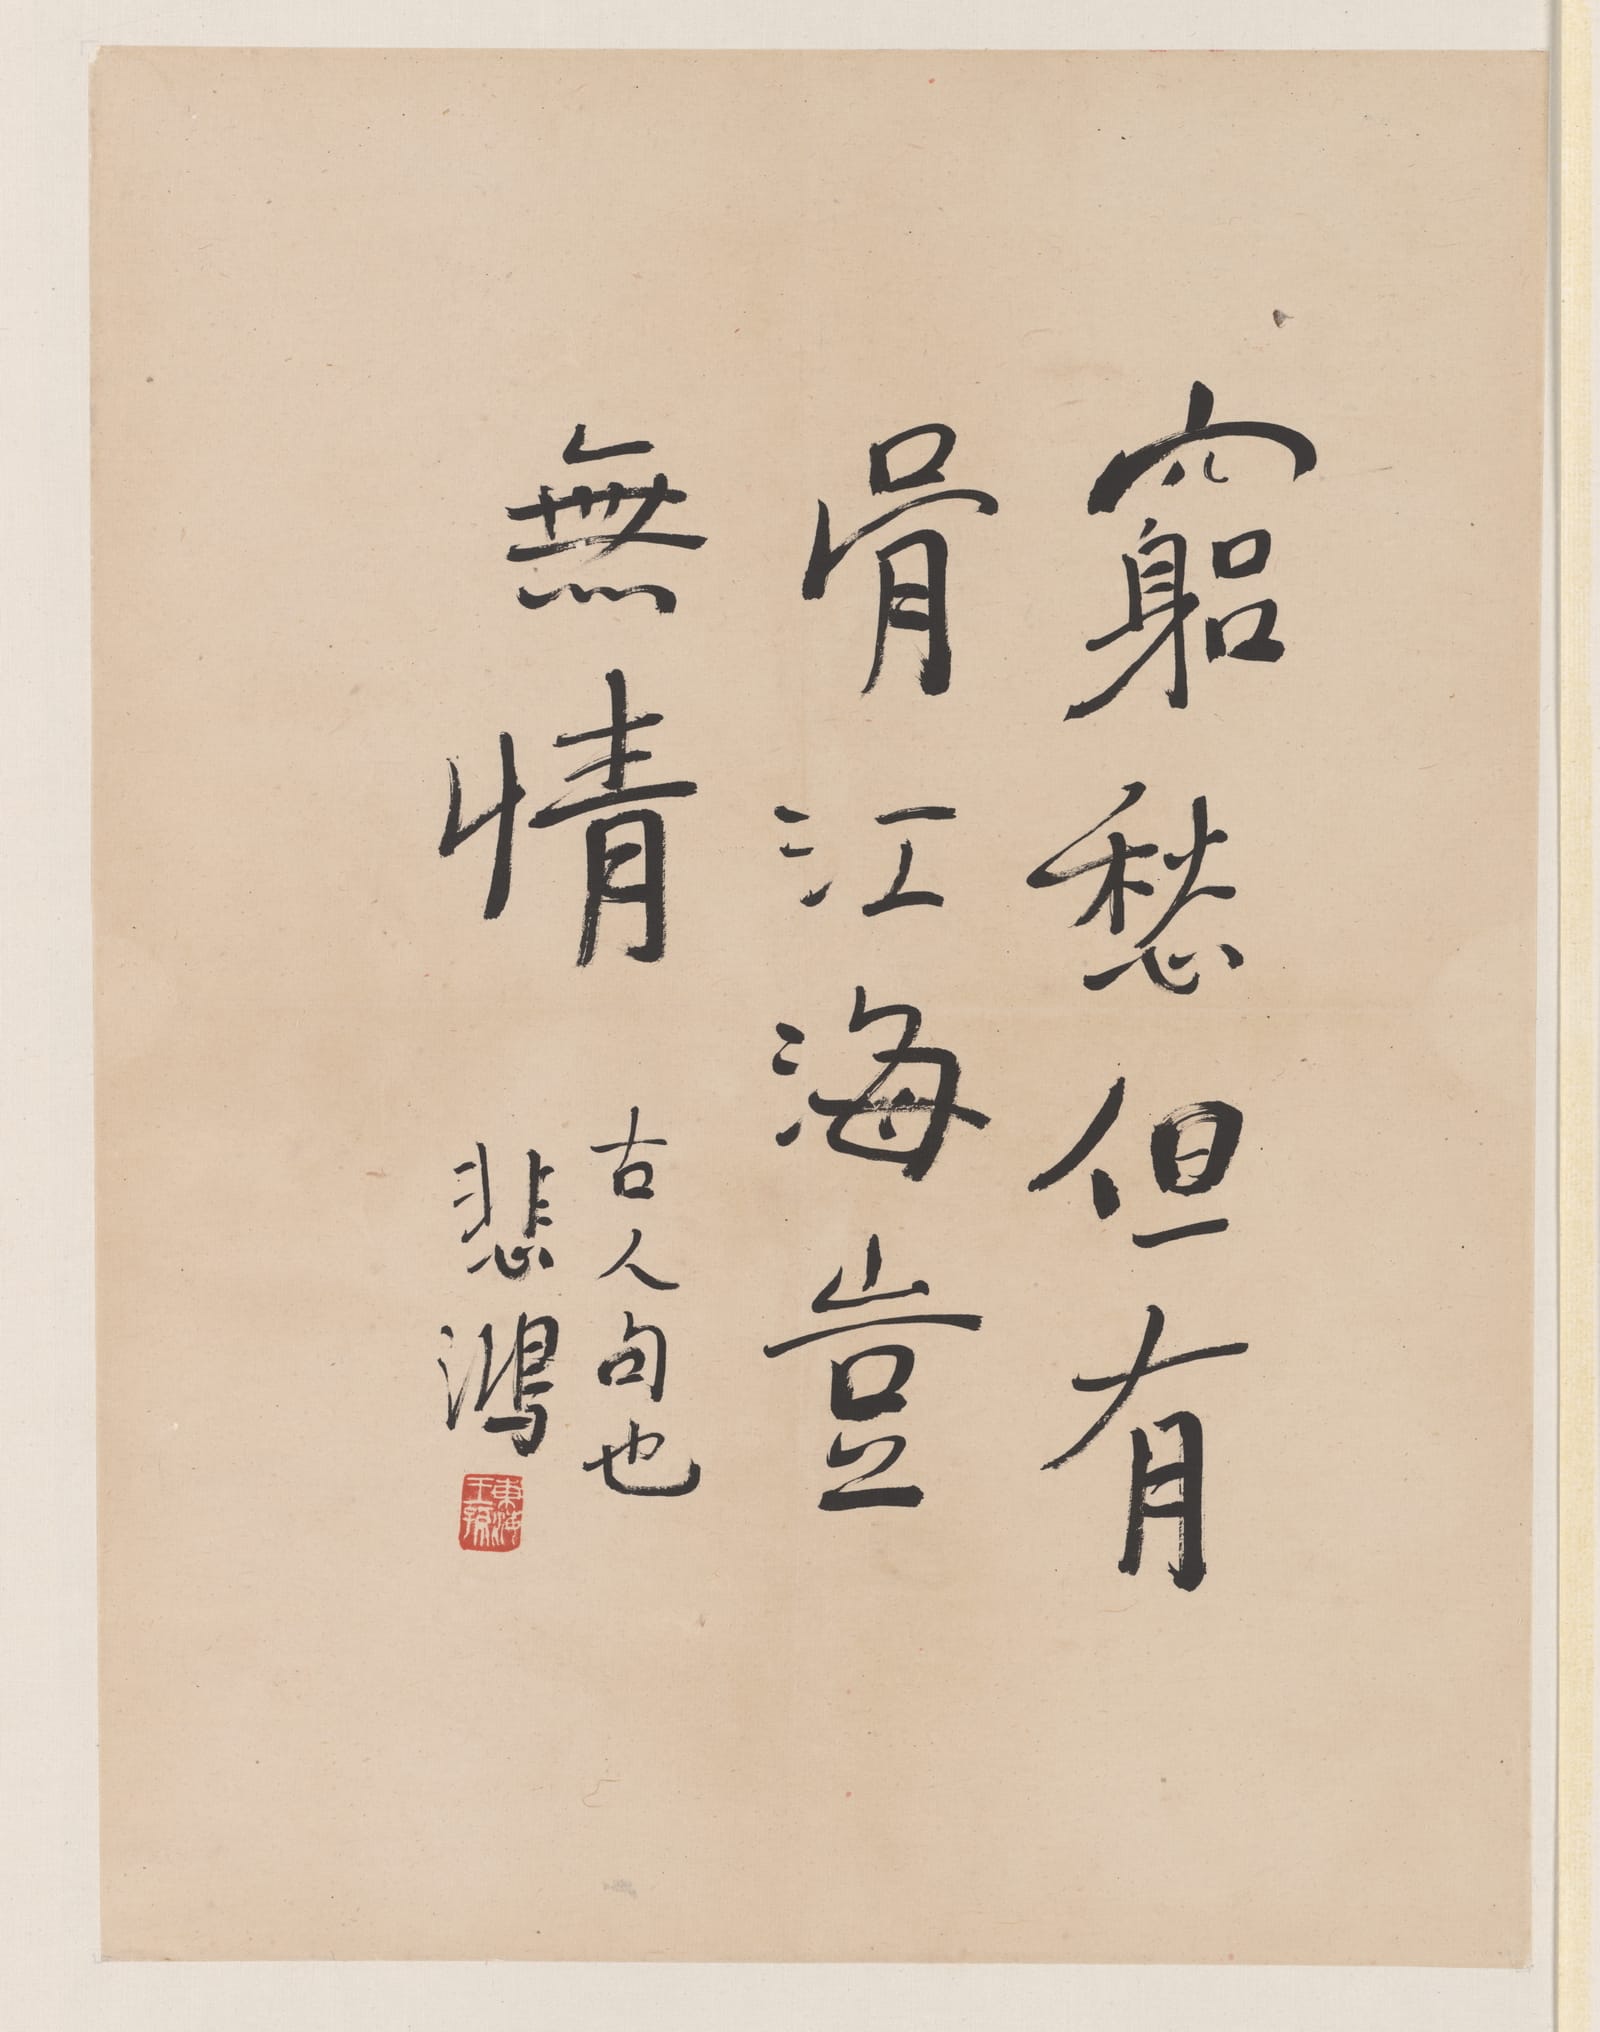 竆愁但有
骨江海豈
無情
古人句也
悲鴻
東海
王孫